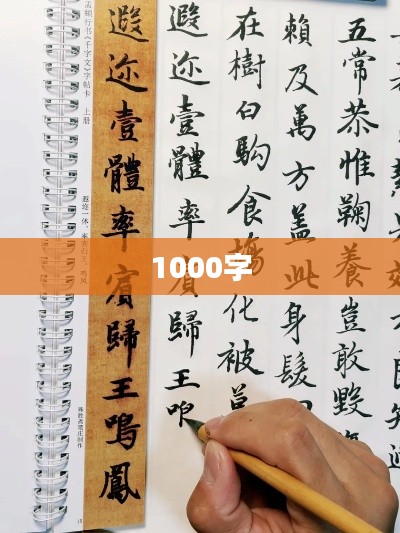 五常恭惟鞠養豈敢毀
賴及萬方蓋此身髮四
在樹白駒食場化被
遐迩壹體率賓歸王
遐迩壹體率賓歸王鳴鳳
孟頫行书《千字文》字帖卡 上册
1000字